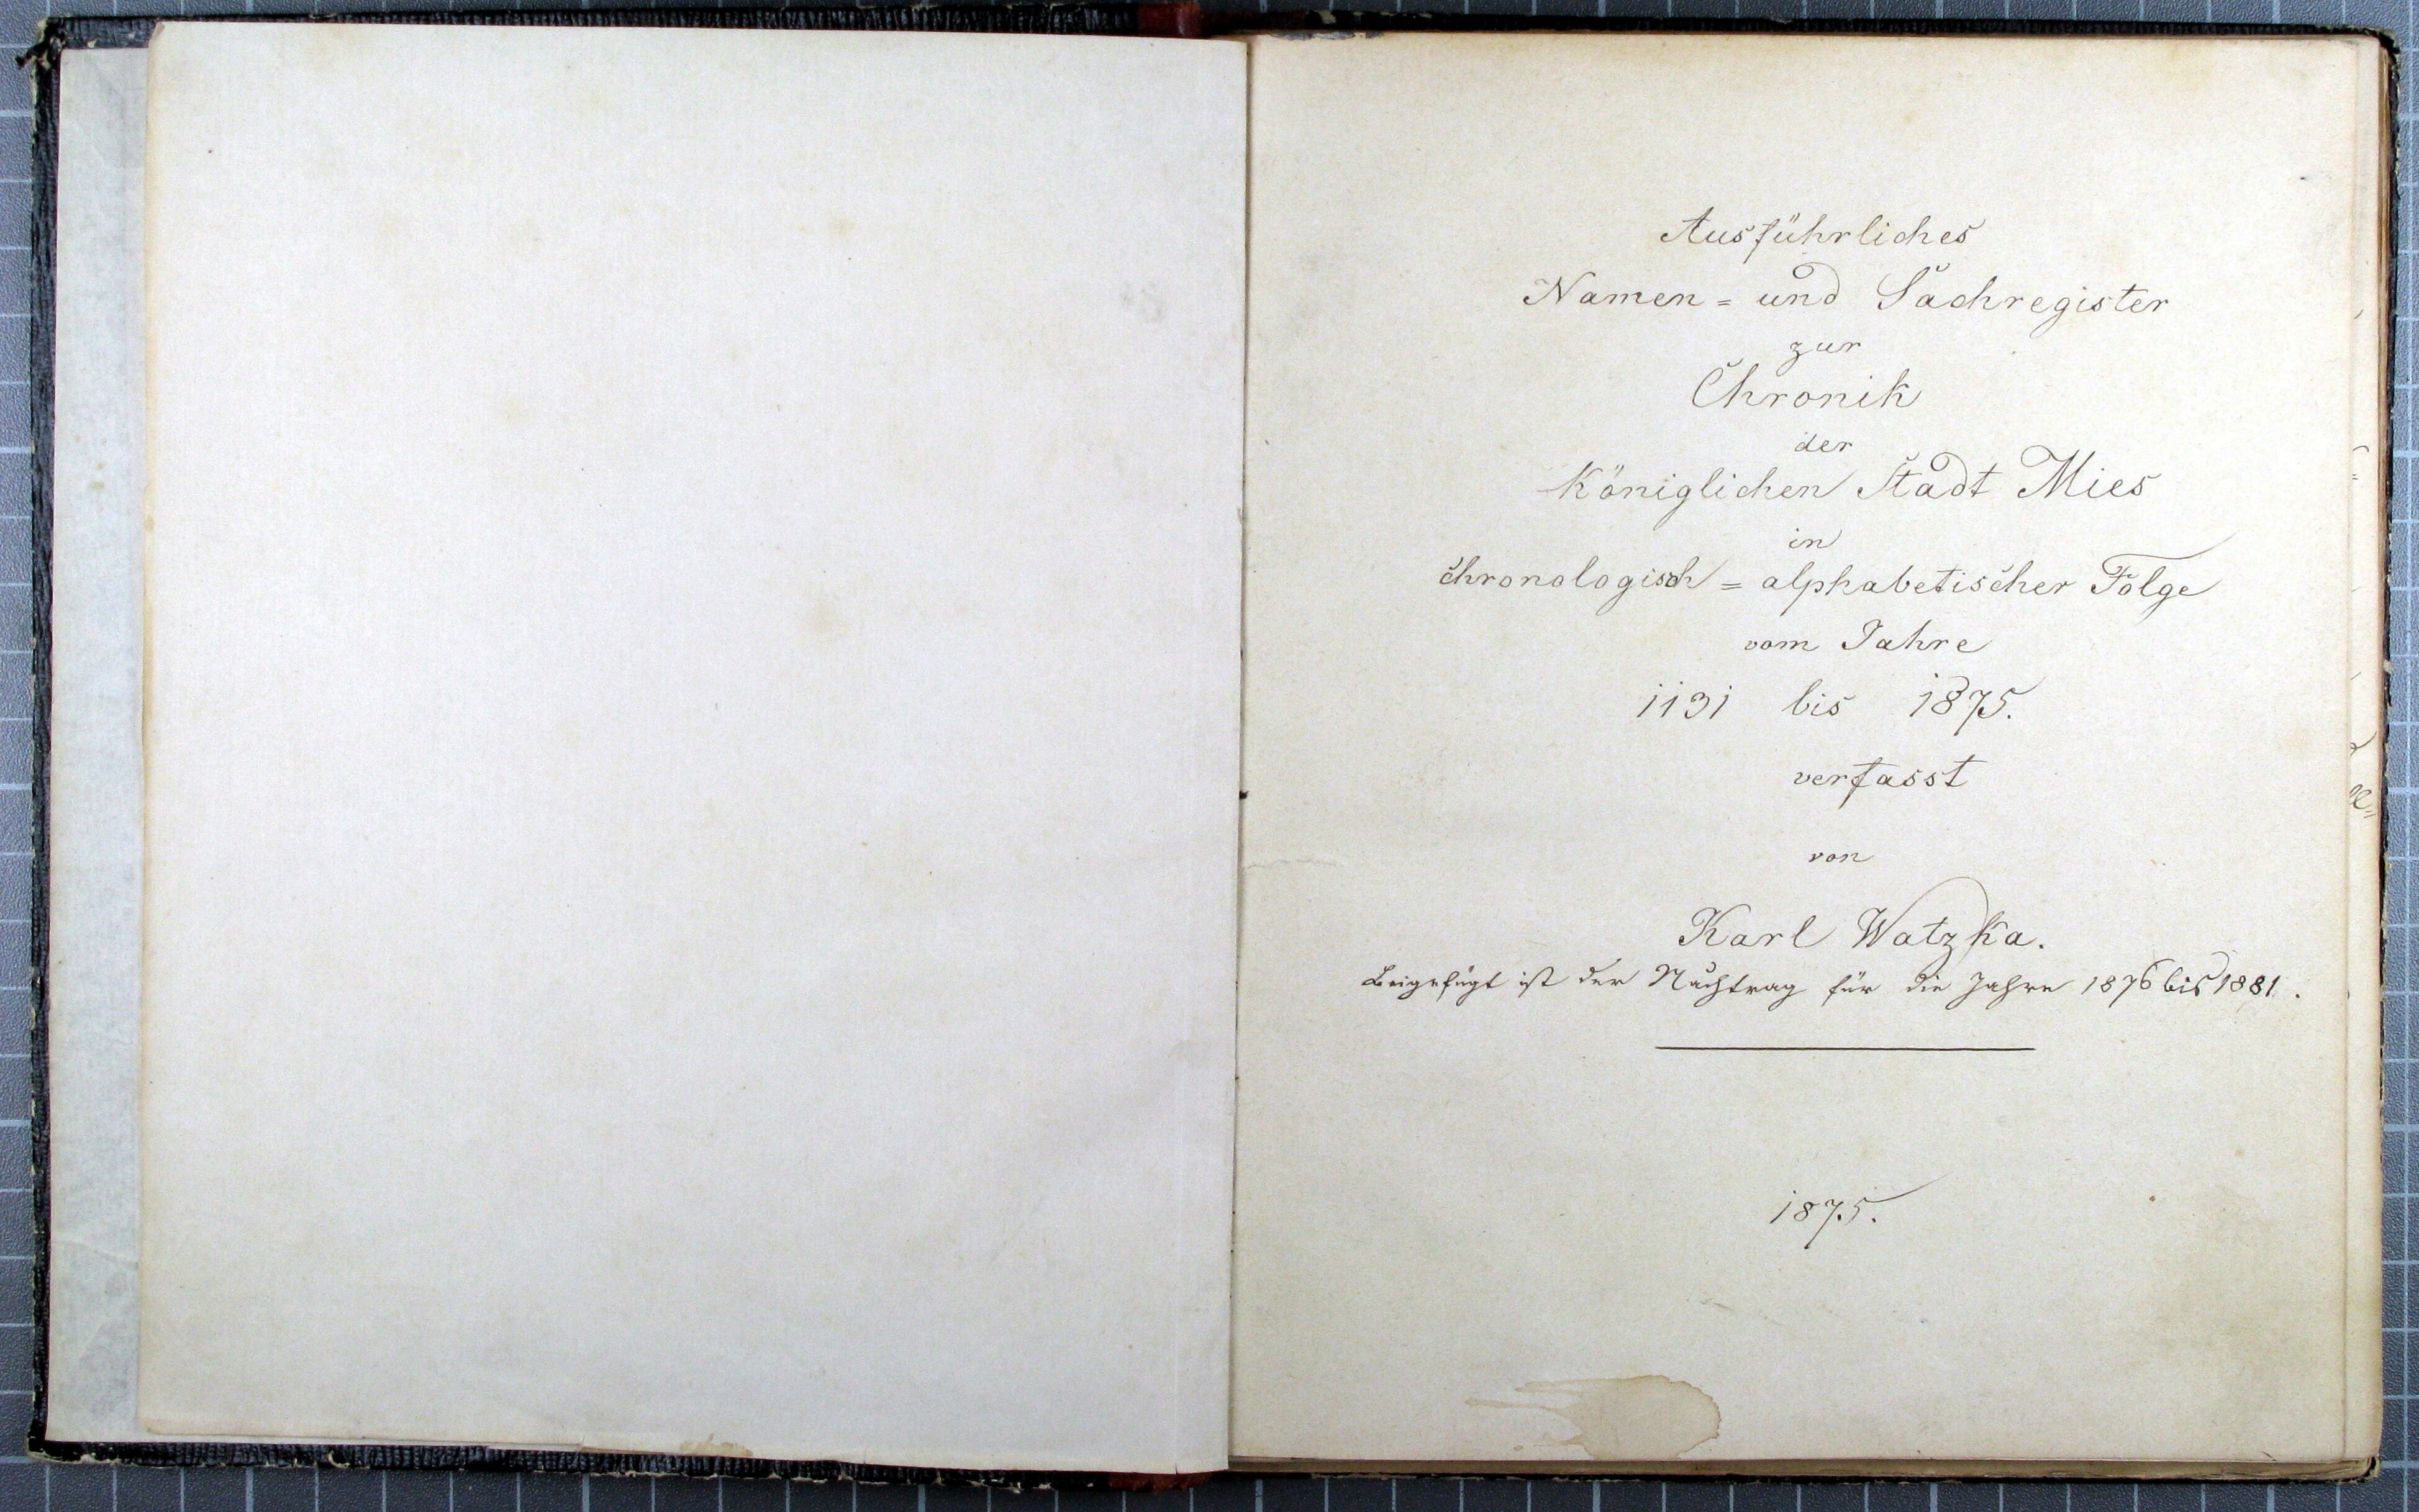 Ausführliches
Namen= und Sachregister
zur
Chronik
der
Königlichen Stadt Mies
in
chronologisch=alphabetischer Folge
vom Jahre
1131 bis 1875.
verfasst
von
Karl Watzka.
Beigefügt ist der Nachtrag für die Jahre 1876 bis 1881.
1875.